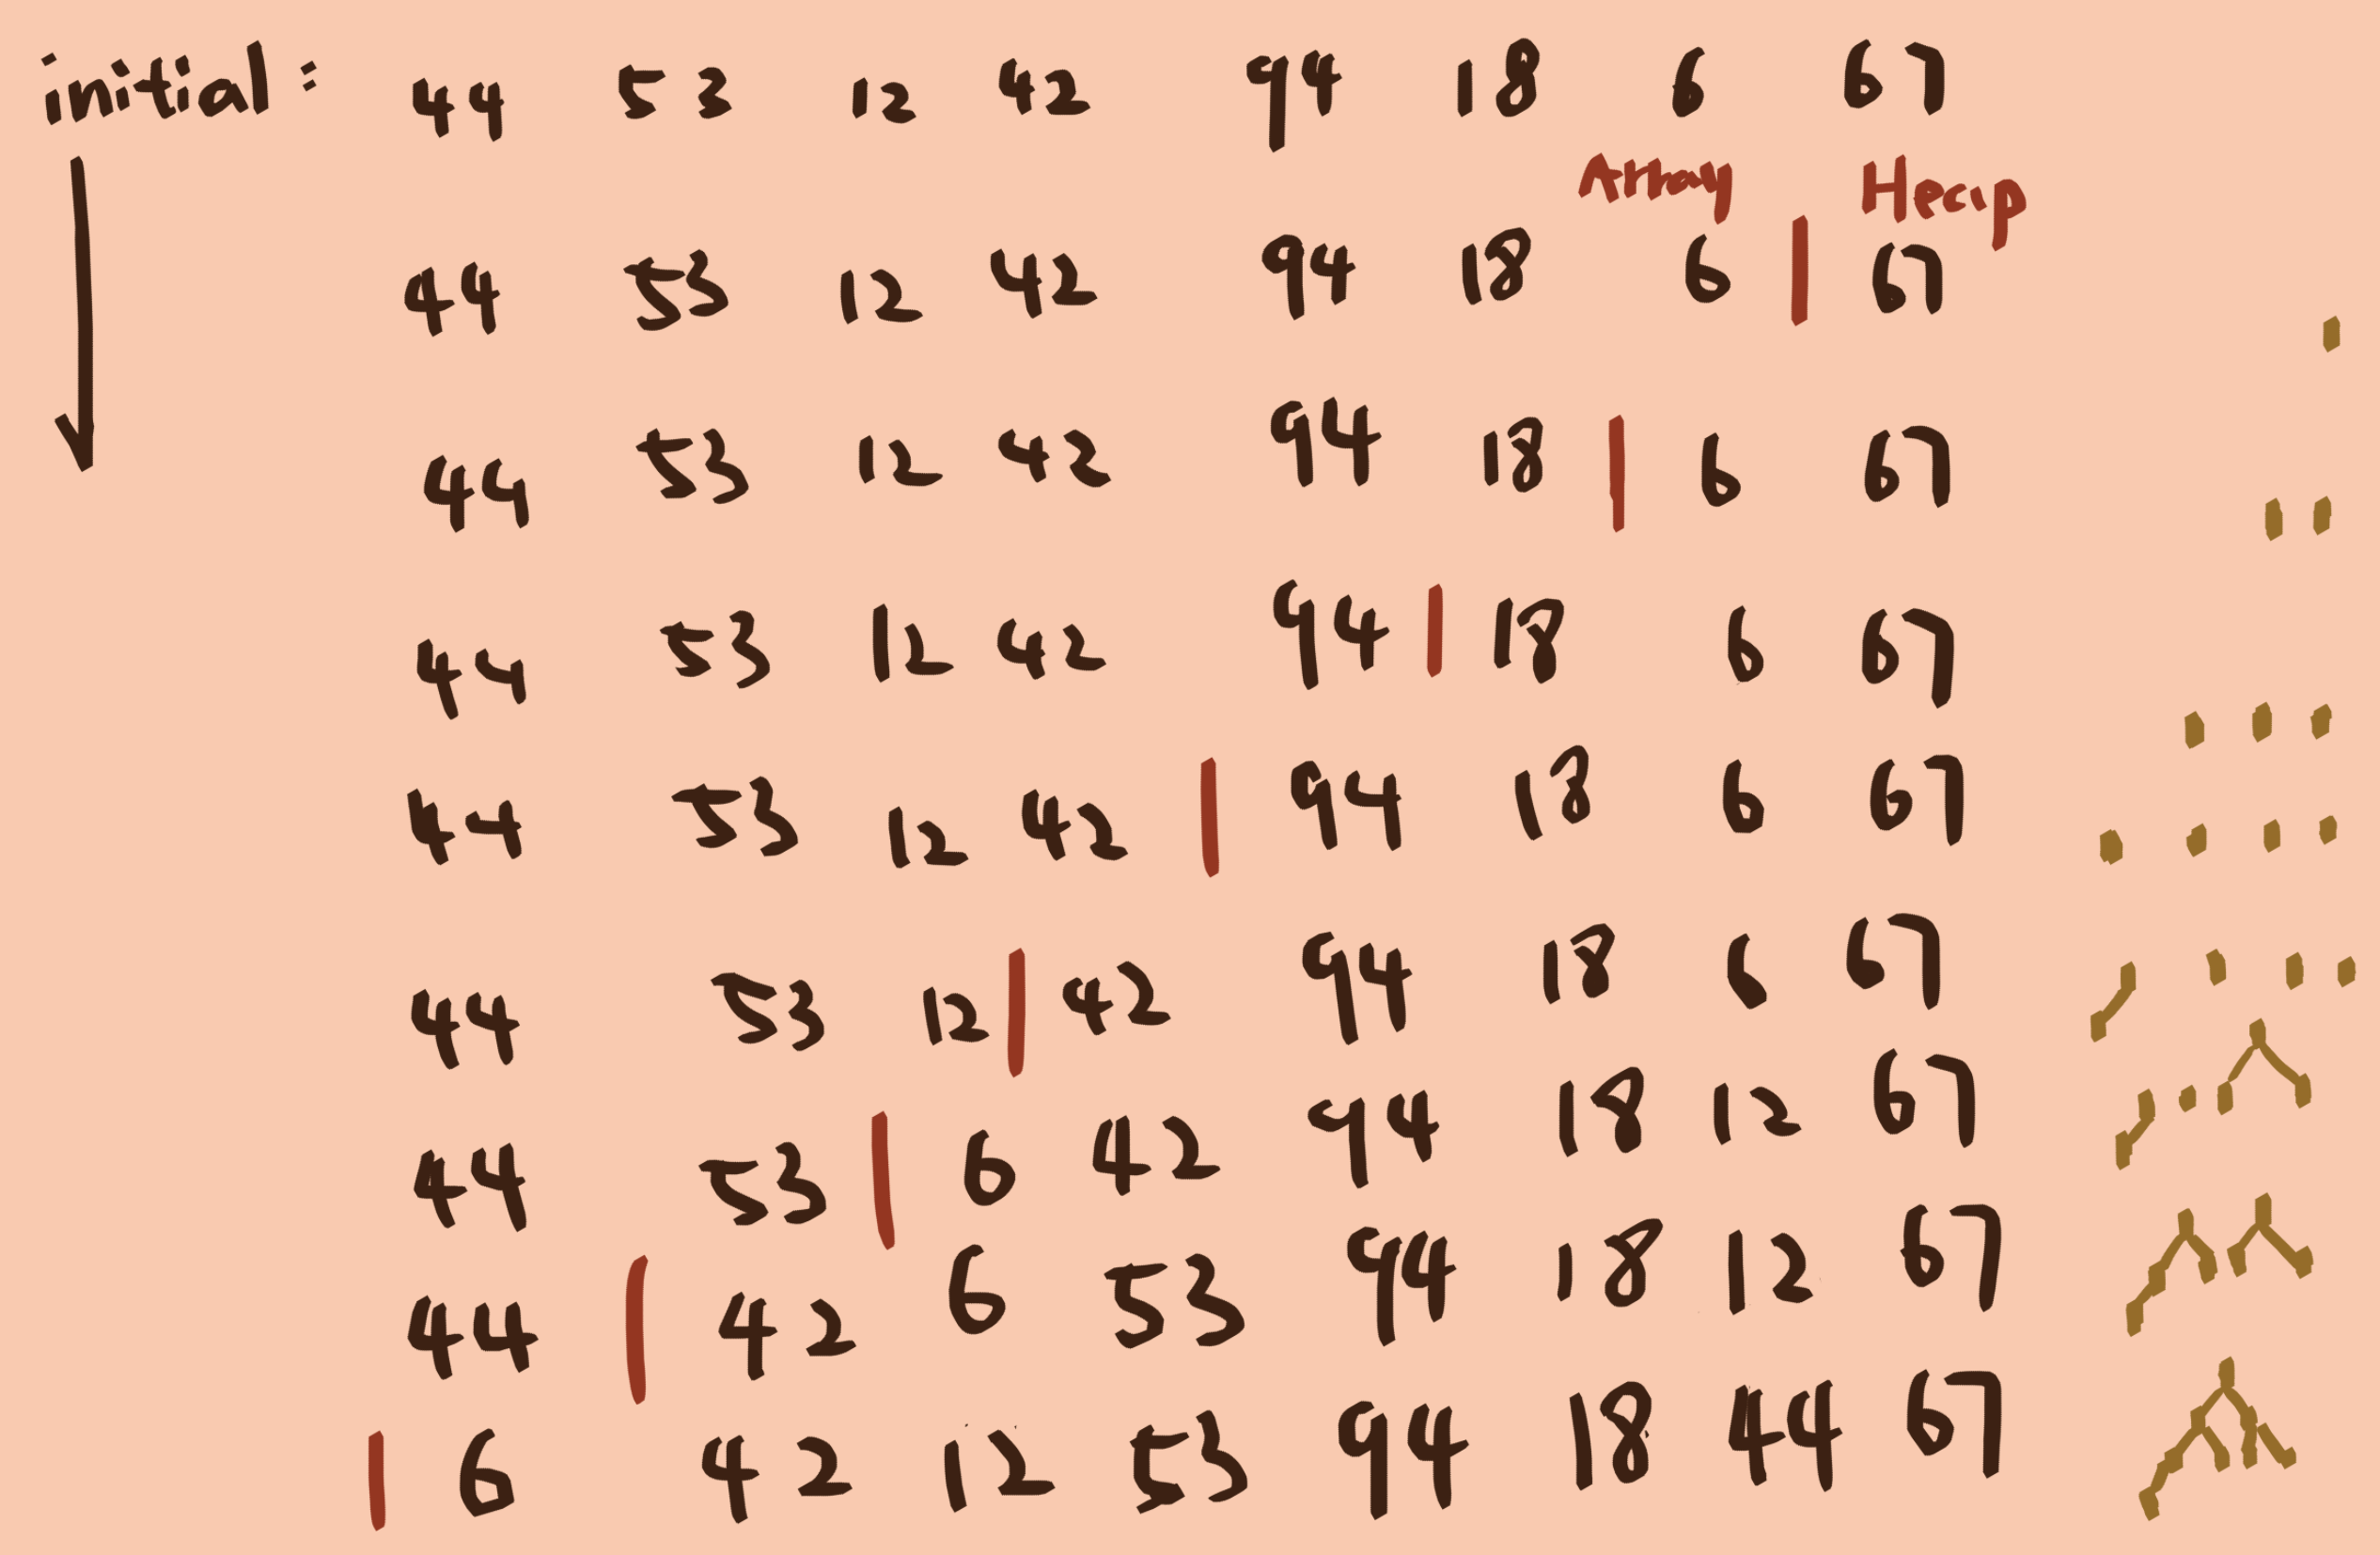 initial: 44 53 12 42 94 18 6 67
Array Heap
44 53 12 42 94 18 6 | 67
44 53 12 42 94 18 | 6 67
44 53 12 42 94 | 18 6 67
44 53 12 42 | 94 18 6 67
44 53 12 | 42 94 18 6 67
44 53 | 6 42 94 18 12 67
44 | 42 6 53 94 18 12 67
| 6 42 12 53 94 18 44 67